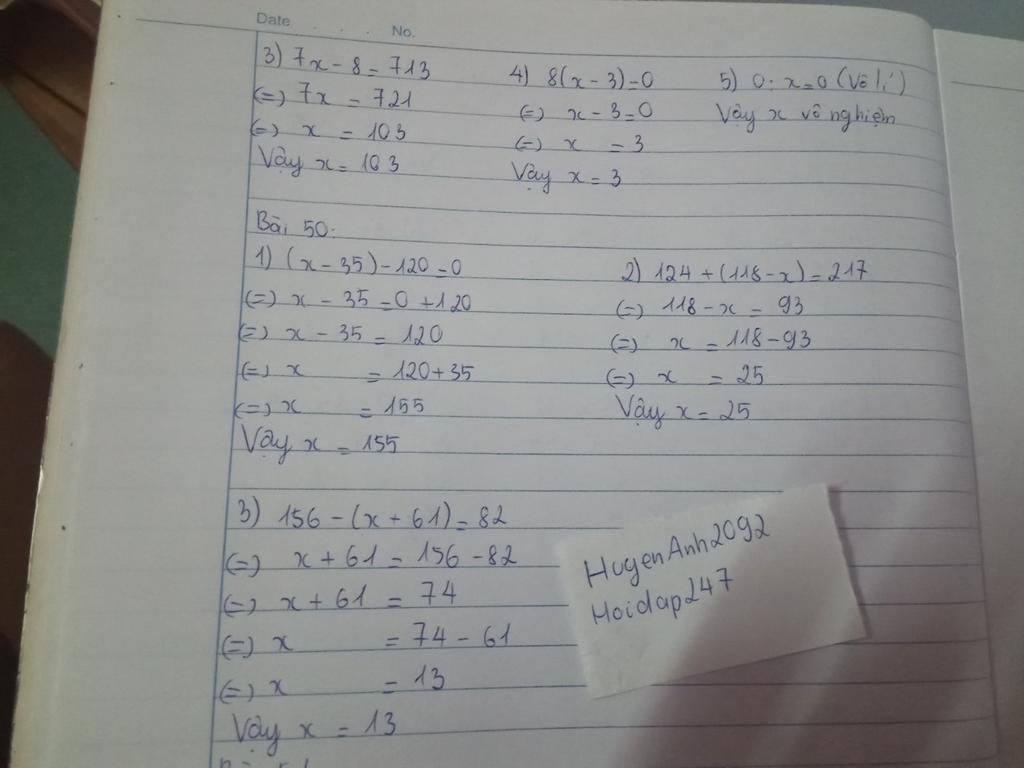 Date . . . No.
3) 7x - 8 = 713
(=) 7x = 721
(=) x = 103
Vậy x = 103
4) 8(x - 3) = 0
(=) x - 3 = 0
(=) x = 3
Vậy x = 3
5) 0 : x = 0 (Vô lí)
Vậy x vô nghiệm
Bài 50:
1) (x - 35) - 120 = 0
(=) x - 35 = 0 + 120
(=) x - 35 = 120
(=) x = 120 + 35
(=) x = 155
Vậy x = 155
2) 124 + (118 - x) = 217
(=) 118 - x = 93
(=) x = 118 - 93
(=) x = 25
Vậy x = 25
3) 156 - (x + 61) = 82
(=) x + 61 = 156 - 82
(=) x + 61 = 74
(=) x = 74 - 61
(=) x = 13
Vậy x = 13
HuyenAnh2092
Hoidap247